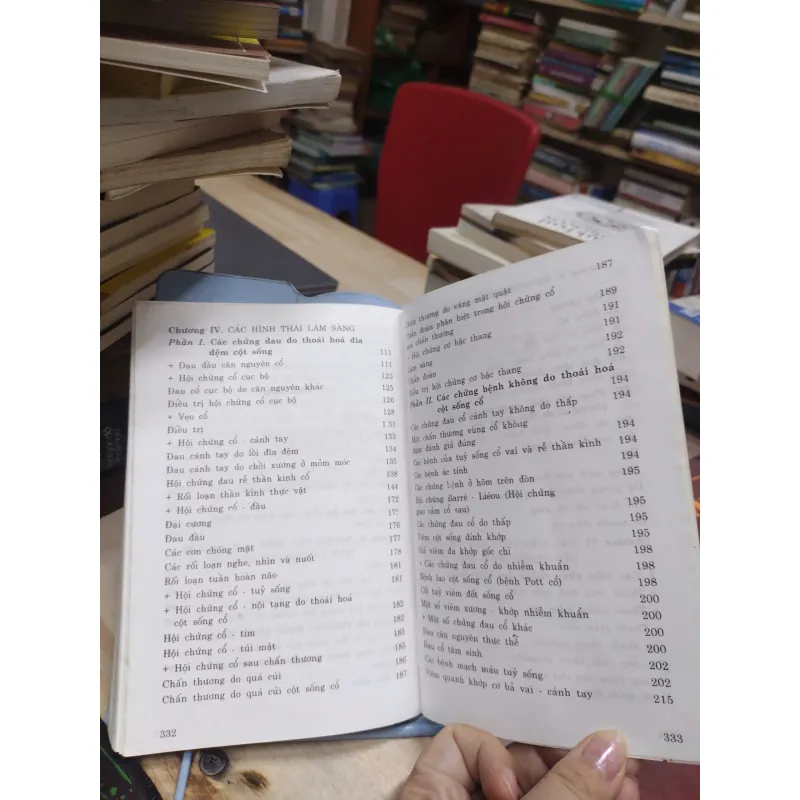 Chương IV. CÁC HÌNH THÁI LÂM SÀNG
Phần I. Các chứng đau do thoái hoá đĩa
đệm cột sống 111
+ Đau đầu căn nguyên cổ 111
+ Hội chứng cổ cục bộ 123
Đau cổ cục bộ do căn nguyên khác 125
Điều trị hội chứng cổ cục bộ 126
+ Vẹo cổ 128
Điều trị 131
+ Hội chứng cổ - cánh tay 133
Đau cánh tay do lồi đĩa đệm 134
Đau cánh tay do chồi xương ở mỏm móc 135
Hội chứng đau rễ thần kinh cổ 138
+ Rối loạn thần kinh thực vật 144
+ Hội chứng cổ - đầu 172
Đại cương
Đau đầu 176
Các cơn chóng mặt 177
Các rối loạn nghe, nhìn và nuốt 178
Rối loạn tuần hoàn não 181
+ Hội chứng cổ - tuỷ sống 181
+ Hội chứng cổ - nội tạng do thoái hoá
cột sống cổ 182
Hội chứng cổ - tim 182
Hội chứng cổ - túi mật 185
+ Hội chứng cổ sau chấn thương 185
Chấn thương do quá cúi 186
Chấn thương do quá cúi cột sống cổ 187
332
Chấn thương do văng mặt quật 187
Chẩn đoán phân biệt trong hội chứng cổ
sau chấn thương 189
+ Hội chứng cơ bậc thang 191
Lâm sàng 191
Chẩn đoán 192
Điều trị hội chứng cơ bậc thang 192
Phần II. Các chứng bệnh không do thoái hoá
cột sống cổ 194
Các chứng đau cổ cánh tay không do thấp 194
Một chấn thương vùng cổ không
được đánh giá đúng 194
Các bệnh của tuỷ sống cổ vai và rễ thần kinh 194
Các bệnh ác tính 194
Các chứng bệnh ở hõm trên đòn 195
Hội chứng Barré - Liéou (Hội chứng
giao cảm cổ sau) 195
Các chứng đau cổ do thấp 195
Viêm cột sống dính khớp 195
Giả viêm đa khớp gốc chi 198
+ Các chứng đau cổ do nhiễm khuẩn 198
Bệnh lao cột sống cổ (bệnh Pott cổ) 198
Cốt tuỷ viêm đốt sống cổ 200
Một số viêm xương - khớp nhiễm khuẩn 200
+ Một số chứng đau cổ khác 200
Đau căn nguyên thực thể 200
Đau cổ tâm sinh 202
Các bệnh mạch máu tuỷ sống 202
Viêm quanh khớp cơ bả vai - cánh tay 215
333